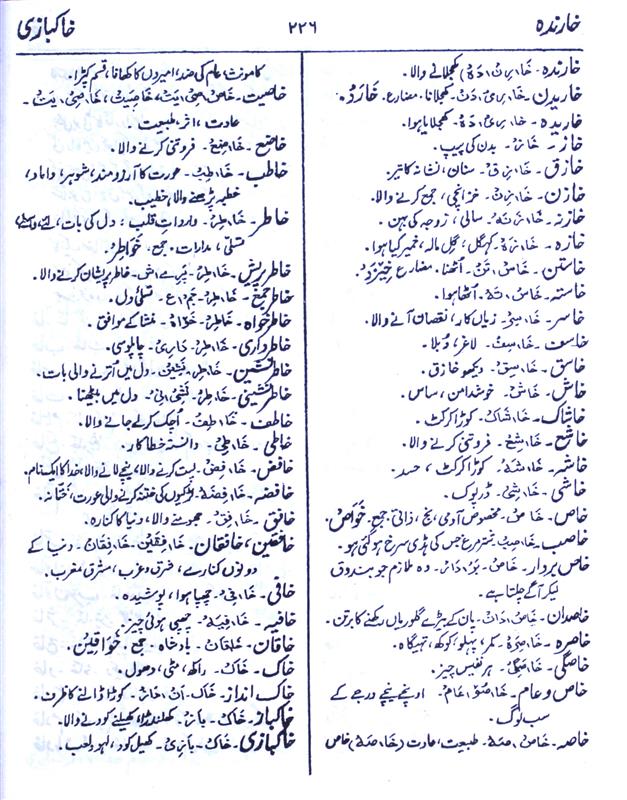 خارندہ
۲۲۶
خاکبازی
خارندہ۔ خَا، رِن، دَہ۔ کھجلانے والا۔
خاریدن۔ خَا، رِی، دَن۔ کھجلانا۔ مضارع۔ خَارَدْ۔
خاریدہ۔ خَا، رِی، دَہ۔ کھجلایا ہوا۔
خاز۔ خَازْ۔ بدن کی پیپ۔
خازق۔ خَا، زِقْ۔ سنان، نشانہ کا تیر۔
خازن۔ خَا، زِنْ۔ خزانچی، جمع کرنے والا۔
خازنہ۔ سالی، زوجہ کی بہن۔
خازہ۔ خَا، زَہ۔ کہگل، گِل مالہ، خمیر کیا ہوا۔
خاستن۔ خَاسْ، تَنْ۔ اُٹھنا۔ مضارع خیزد۔
خاستہ۔ خَاسْ، تَہ۔ اُٹھا ہوا۔
خاسر۔ خَا، سِرْ۔ زیاں کار، نقصان آنے والا۔
خاسف۔ خَا، سِفْ۔ لاغر، دُبلا۔
خاسق۔ خَا، سِقْ۔ دیکھو خازق۔
خاش۔ خَاشْ۔ خوشدامن، ساس۔
خاشاک۔ خَا، شَاکْ۔ کوڑا کرکٹ۔
خاشع۔ خَا، شِعْ۔ فروتنی کرنے والا۔
خاشہ۔ خَا، شَہْ۔ کوڑا کرکٹ، حسد۔
خاشی۔ خَا، شِیْ۔ ڈرپوک۔
خاص۔ خَا صْ۔ مخصوص آدمی، نج، ذاتی۔ جمع۔ خَوَاصْ۔
خاصب۔ خَا، صِبْ۔ شترمرغ جس کی ہڈی سرخ ہو گئی ہو۔
خاص بردار۔ خَاصْ، بَرْ، دَارْ۔ وہ ملازم جو بندوق
لیکر آگے چلتا ہے۔
خاصدان۔ خَاصْ، دَانْ۔ پان کے بیڑے گلوریاں رکھنے کا برتن۔
خاصرہ۔ خَا، صِرَہْ۔ کمر، پہلو، کوکھ، تہیگاہ۔
خاصگی۔ خَا، صَگِیْ۔ ہر نفیس چیز۔
خاص و عام۔ خَا، صُوْ، عَامْ۔ اونچے نیچے درجے کے
سب لوگ۔
خاصہ۔ خَاصْ، صَہْ۔ طبیعت، عادت (خَا صَہْ) خاص
کا مونث، عام کی ضد، امیروں کا کھانا، قسم کپڑا۔
خاصیت۔ خَاصْ، صِیْ، یَتْ، خَاصِیَتْ، خَا، صِیْ، یَتْ۔
عادت، اثر، طبیعت۔
خاضع۔ خَا، ضِعْ۔ فروتنی کرنے والا۔
خاطب۔ خَا، طِبْ۔ عورت کا آرزومند، شوہر، داماد،
خطبہ پڑھنے والا، خطیب۔
خاطر۔ خَا، طِرْ۔ وارداتِ قلب، دل کی بات، لئے، واسطے،
تسلی، مدارات۔ جمع۔ خَوَاطِرْ۔
خاطر پریش۔ خَا، طِرْ، پَرِے، اش۔ خاطر پریشان کرنے والا۔
خاطر جمع۔ خَا، طِرْ، جَمْ، ع۔ تسلئ دل۔
خاطر خواہ۔ خَا، طِرْ، خَوَاہْ۔ منشا کے موافق۔
خاطر داری۔ خَا، طِرْ، دَا، رِیْ۔ چاپلوسی۔
خاطر نشین۔ خَا، طِرْ، نَشِیْں۔ دل میں اُترنے والی بات۔
خاطر نشینی۔ خَا، طِرْ، نَشِیْ، نِیْ۔ دل میں بیٹھنا۔
خاطف۔ خَا، طِفْ۔ اُچک کر لے جانے والا۔
خاطی۔ خَا، طِیْ۔ دانستہ خطا کار۔
خافض۔ خَا، فِضْ۔ پست کرنے والا، نیچے لانے والا، خدا کا ایک نام۔
خافضہ۔ خَا، فِضَہْ۔ لڑکیوں کی ختنہ کرنے والی عورت، ختانہ۔
خافق۔ خَا، فِقْ۔ جھومنے والا، دنیا کا کنارہ۔
خافقین، خافقان۔ خَا، فِقَیْنْ، خَا، فِقَانْ۔ دنیا کے
دونوں کنارے، شرق و غرب، مشرق مغرب۔
خافی۔ خَا، فِیْ۔ چھپا ہوا، پوشیدہ۔
خافیہ۔ خَا، فِیَہْ۔ چھپی ہوئی چیز۔
خاقان۔ خَا، قَانْ۔ بادشاہ۔ جمع۔ خَوَاقِیْن۔
خاک۔ خَاکْ۔ راکھ، مٹی، دھول۔
خاک انداز۔ خَاکْ، اَنْ، دَازْ۔ کوڑا ڈالنے کا ظرف۔
خاکباز۔ خَاکْ، بَازْ۔ کھلنڈرا، کھیلنے کودنے والا۔
خاکبازی۔ خَاکْ، بَا، زِیْ۔ کھیل کود، لہو و لعب۔